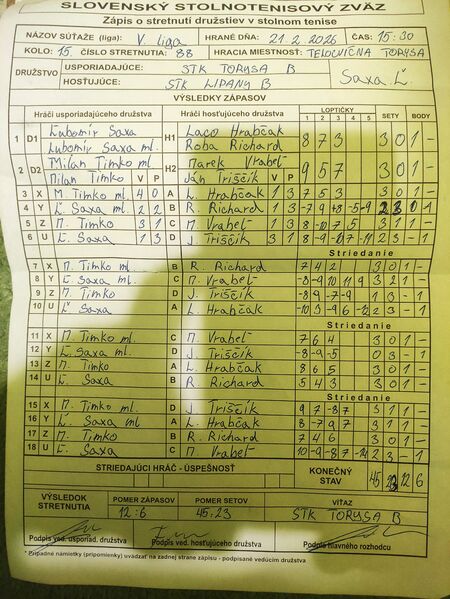 SLOVENSKÝ STOLNOTENISOVÝ ZVÄZ
Zápis o stretnutí družstiev v stolnom tenise
NÁZOV SÚŤAŽE (liga): V. liga HRANÉ DŇA: 21.2.2026 ČAS: 15:30
KOLO: 15 ČÍSLO STRETNUTIA: 88 HRACIA MIESTNOSŤ: TELOCVIČNA TORYSA
DRUŽSTVO USPORIADAJÚCE: STK TORYSA B Saxa Ľ.
HOSŤUJÚCE: STK LIPANY B
VÝSLEDKY ZÁPASOV
Hráči usporiadajúceho družstva Hráči hosťujúceho družstva LOPTIČKY 1 2 3 4 5 SETY BODY
1 D1 Ľubomír Saxa H1 Laco Hrabčak 8 7 3 3 0 1 -
Ľubomír Saxa ml. Roba Richard
2 D2 Milan Timko ml H2 Marek Vrabeľ 9 5 7 3 0 1 -
Milan Timko V P Ján Triščík V P
3 X M. Timko ml 4 0 A L. Hrabčak 1 3 7 5 3 3 0 1 -
4 Y Ľ. Saxa ml. 2 2 B R. Richard
5 Z M. Timko 3 1 C M. Vrabeľ 1 3 8 -10 7 5 3 1 1 -
6 U Ľ. Saxa 1 3 D J. Triščík 3 1 8 -9 -2 3 - 1
Striedanie
7 X M. Timko ml B R. Richard 7 4 2 3 0 1 -
8 Y Ľ. Saxa ml. C M. Vrabeľ 3 2 1 -
9 Z M. Timko D J. Triščík 8 -9 -7 -9 1 3 - 1
10 U Ľ. Saxa A L. Hrabčak 2 3 - 1
Striedanie
11 X M. Timko ml. C M. Vrabeľ 7 6 4 3 0 1 -
12 Y Ľ. Saxa ml. D J. Triščík -8 -9 -5 0 3 - 1
13 Z M. Timko A L. Hrabčak 8 6 5 3 0 1 -
14 U Ľ. Saxa B R. Richard 5 4 3 3 0 1 -
Striedanie
15 X M. Timko ml. D J. Triščík 9 7 -8 7 3 1 1 -
16 Y Ľ. Saxa ml. A L. Hrabčak 3 1 1 -
17 Z M. Timko B R. Richard 7 4 6 3 0 1 -
18 U Ľ. Saxa C M. Vrabeľ 2 3 - 1
STRIEDAJÚCI HRÁČ - ÚSPEŠNOSŤ KONEČNÝ STAV 45 23 12 6
VÝSLEDOK STRETNUTIA POMER ZÁPASOV POMER SETOV VÍŤAZ
12:6 45:23 STK TORYSA B
Podpis ved. usporiad. družstva Podpis ved. hosťujúceho družstva Podpis hlavného rozhodcu
* Prípadné námietky (pripomienky) uvádzať na zadnej strane zápisu - podpísané vedúcim družstva